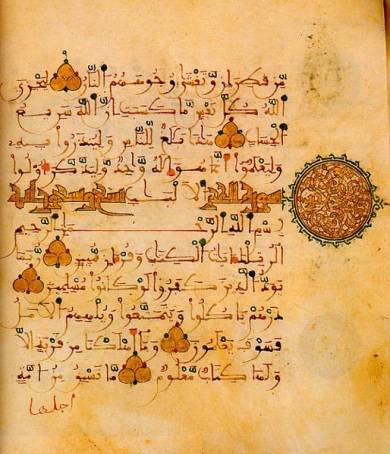 من قطران وتغشى وجوههم النار ليجزي
الله كل نفس ما كسبت ان الله سريع
الحساب هذا بلغ للناس ولينذروا به
وليعلموا انما هو اله وحد وليذكر اولوا
سورة الحجر الالبب تسع وتسعون اية
بسم الله الرحمن الرحيم
الر تلك ايت الكتب وقران مبين ربما
يود الذين كفروا لو كانوا مسلمين
ذرهم ياكلوا ويتمتعوا ويلههم الامل
فسوف يعلمون وما اهلكنا من قرية الا
ولها كتاب معلوم ما تسبق من امة
اجلها